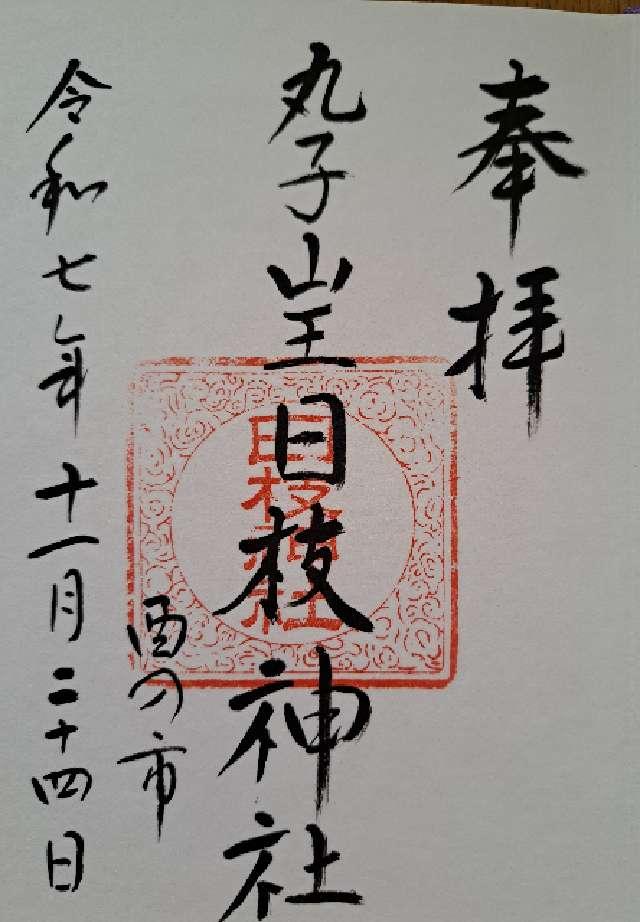 奉拝
丸子山王日枝神社
日枝神社
酉の市
令和七年十一月二十四日